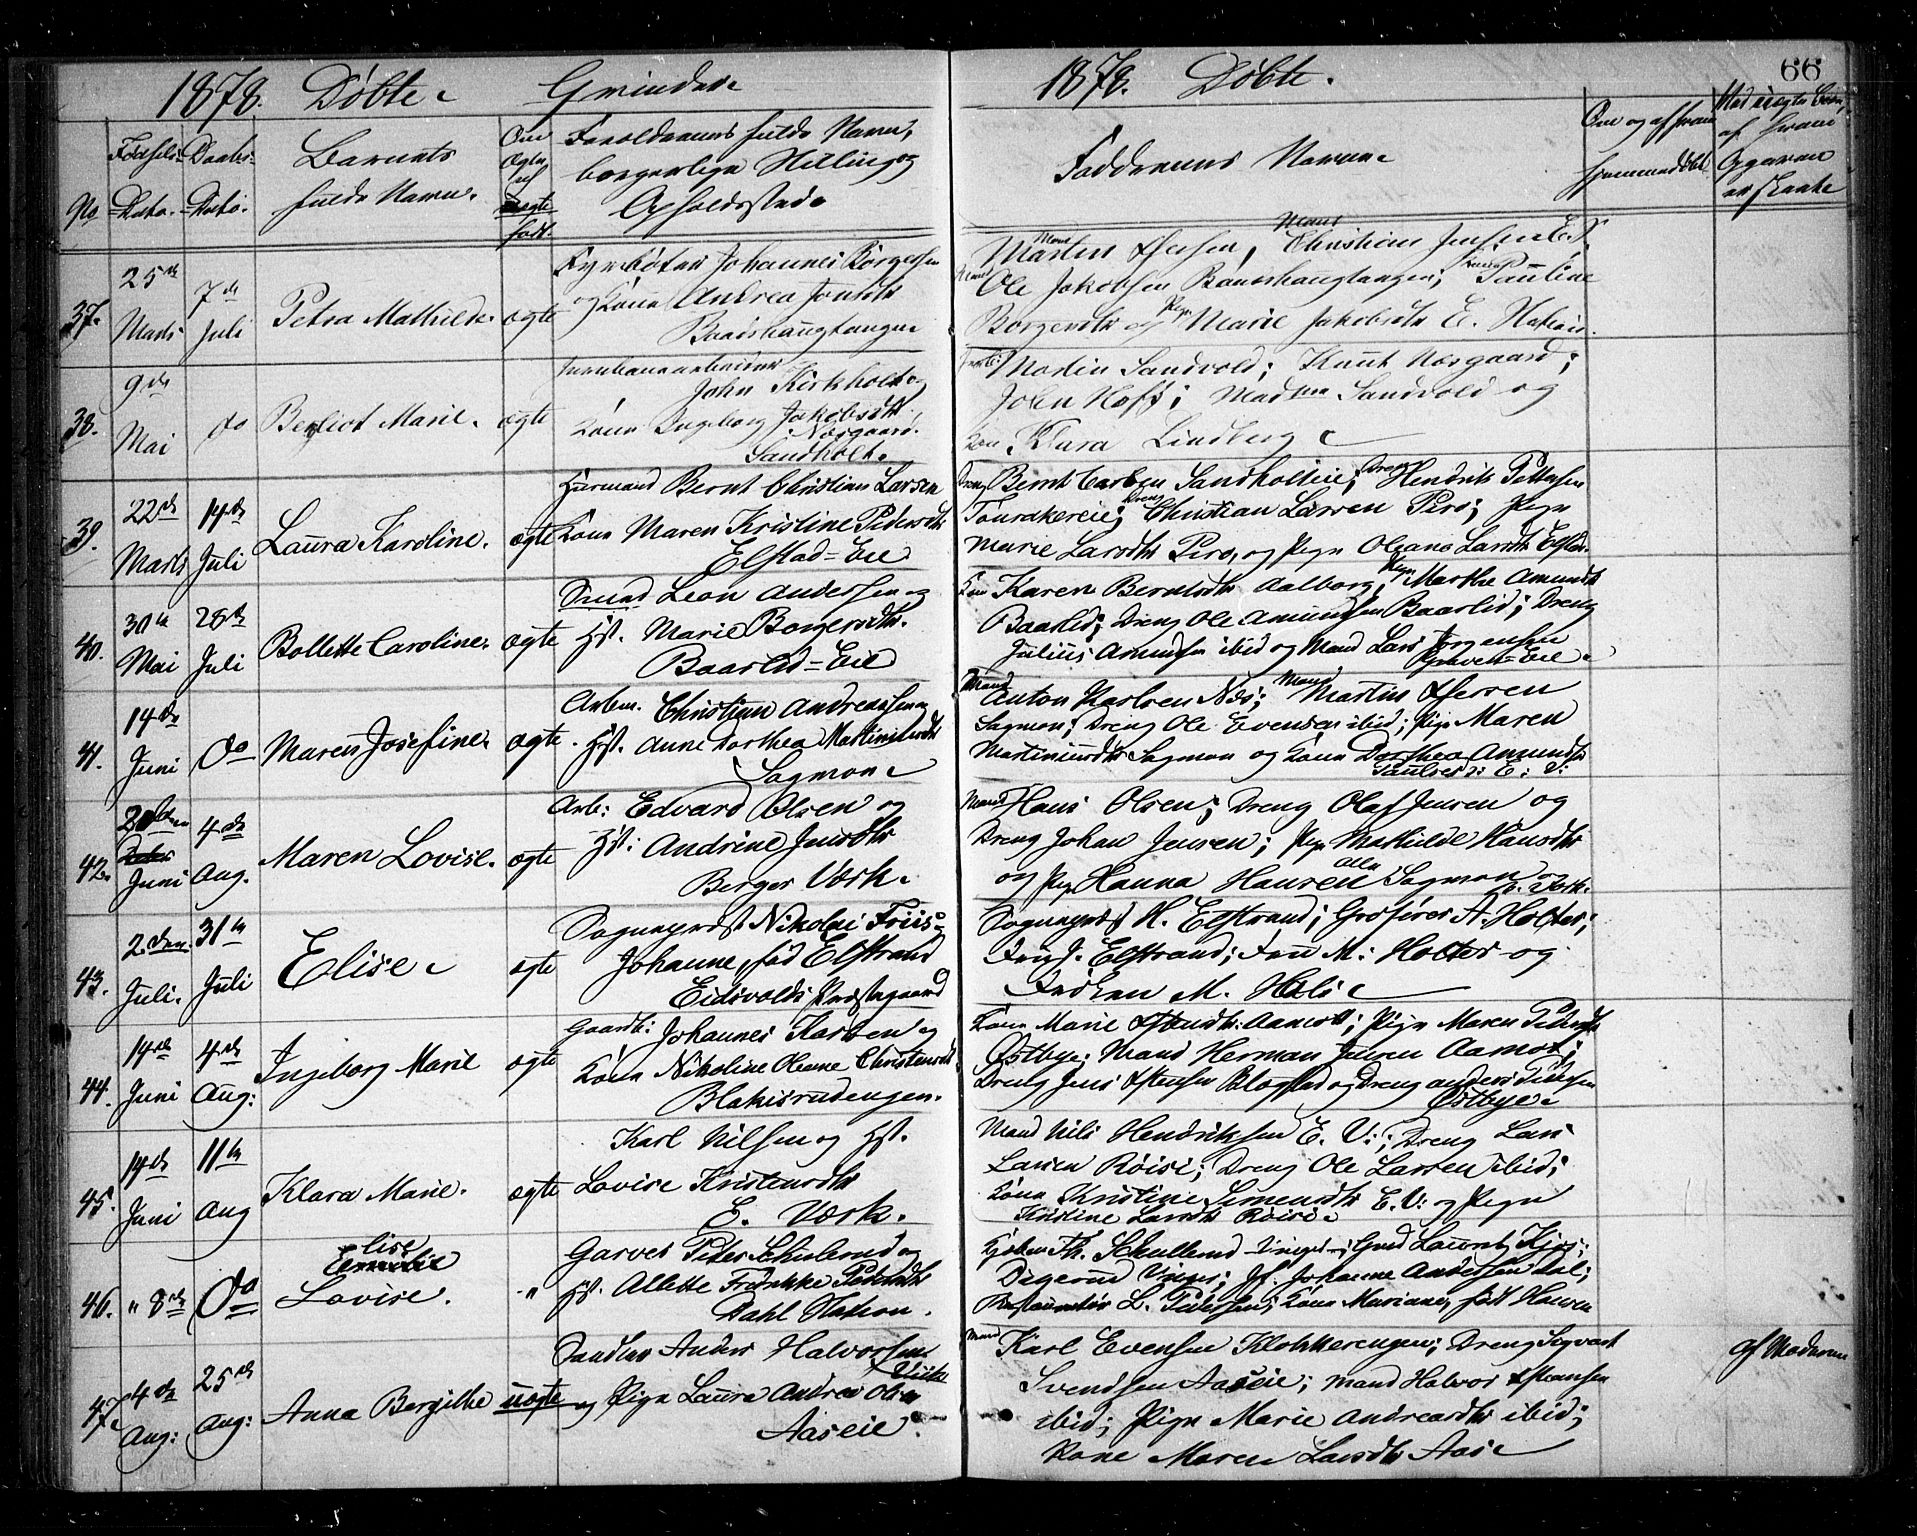 1878. Døbte. Qvinder.
1878. Døbte.
66
No
Fødsels-Dato.
Daabs-Dato.
Barnets
fulde Navn.
Om
Ægte
el
uægte
født.
Forældrenes fulde Navn,
borgerlige Stilling og
Opholdssted
Faddernes Navne
Om og af hvem
hjemmedøbt
Med uægte Børn,
af hvem
Opgaven
er skeet
37.
25de
Marts
7de
Juli
Petra Mathilde.
ægte
Fyrbøter Johannes Borgersen
og Kone Andrea Jonsdtr
Baardshaugtangen
Mand Martin Iversen, Mand Christian Jensen E. V.
Ole Jakobsen Baardshaugtangen; Kone Pauline
Borgersdtr og Pige Marie Jakobsdtr E. Station.
38.
9de
Mai
do
Berliot Marie.
ægte
Jernbanearbeider
John Kirkholt og
Kone Ingeborg Jakobsdtr
Næsgaard.
Sandholt.
Martin Sandvold; Knut Næsgaard;
John Hoff; Mad Sandvold og
Klara Lindberg
39.
22de
Marts
14de
Juli
Laura Karoline.
ægte
Huusmand Bernt Christian Larsen
Kone Maren Kristine Pedersdtr
Elstad-Eie
Dreng Bernt Carlsen Sandholteie; Dreng Hendrik Pettersen
Dreng Christian Larsen Piro; Pige
Marie Larsdtr Piro, og Pige Oleane Larsdtr Elstad.
40.
30te
Mai
28de
Juli
Bollette Caroline.
ægte
Smed Leon Andersen og
Hst. Marie Borgersdtr.
Baarlid-Eie
Kone Karen Berntsdtr Aalborg; Pige Marthe Amundsdtr
Baarlid; Dreng Ole Amundsen Baarlid; Dreng
Julius Amundsen ibid og Mand Lars Jørgensen
Greven-Eie.
41.
14de
Juni
Do
Maren Josefine.
ægte.
Arbm. Christian Andreassen og
Hst. Anne Dorthea Martiniusdtr
Sagmoen
Mand Anton Karlsen Næs; Mand Martin Iversen
Sagmoen; Dreng Ole Evensen ibid; Pige Maren
Martiniusdtr Sagmoen og Kone Dorthea Amundsdtr
E. V.
42.
20den
Juni
4de
Aug.
Maren Lovise.
ægte
Arb: Edvard Olsen og
Hst: Andrine Jensdtr
Berger Værk.
Mand Hans Olsen; Dreng Olaf Jensen og
Dreng Johan Jensen; Pige Mathilde Hansdtr
og Pige Hanna Hansen alle Sagmoen og
E. Værk.
43.
2den
Juli.
31te
Juli
Elise.
ægte
Sogneprest Nikolai Friis og
Johanne, fød Elstrand
Eidsvolds Præstegaard
Sogneprest H. Elstrand; Grosserer A. Holter;
Fru J. Elstrand; Fru M. Holter og
Frøken M. Holst
44.
14de
Juni
4de
Aug:
Ingeborg Marie
ægte
Gaardb: Johannes Karlsen og
Kone Nikoline Oleane Christensdtr
Blakisrudengen.
Kone Marie Aamot; Pige Maren Pedersdtr
Østbye; Mand Herman Jensen Aamot;
Dreng Jens Iversen og Dreng Anders Pedersen
Østbye.
45.
14de
Juni
11te
Aug
Klara Marie.
ægte
Karl Nilsen og Hst.
Lovise Kristensdtr
E. Værk.
Mand Nils Hendriksen E. V.; Dreng Lars
Larsen Røise; Dreng Ole Larsen ibid;
Kone Kristine Simensdtr E. V: og Pige
Kristine Larsdtr Røise
46.
" 8de
Do
Elise
Lovise.
"
Garver Peter Schulerud og
Hst. Allette Fredrikke Pedersdtr
Dahl Station.
Th. Schullerud Vinger; Laurits
Digerud Vinger; Jf. Johanne Andersen Dal;
L. Pedersen; Kone Mariane, født Hansen
47.
4de
Aug:
25de
Aug:
Anna Bergithe
uægte
Anders Halvorsen
og Pige Laura Andrea Olsen
Aaseie.
Mand Karl Evensen Klokkerengen; Dreng Sigvart
Svendsen Aaseie; Mand Halvor
ibid; Pige Marie Andreasdtr ibid;
Kone Maren Larsdtr Aas
af Moderen